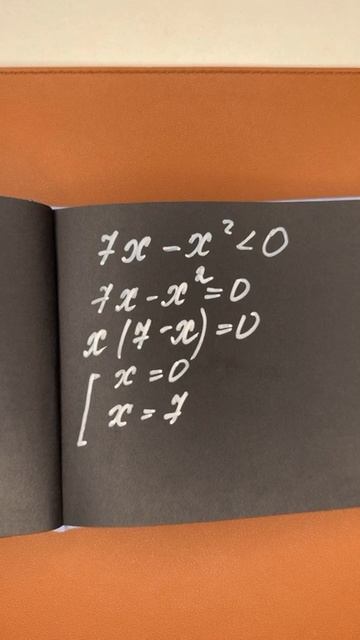 7x - x² < 0
7x - x² = 0
x(7 - x) = 0
[ x = 0
x = 7